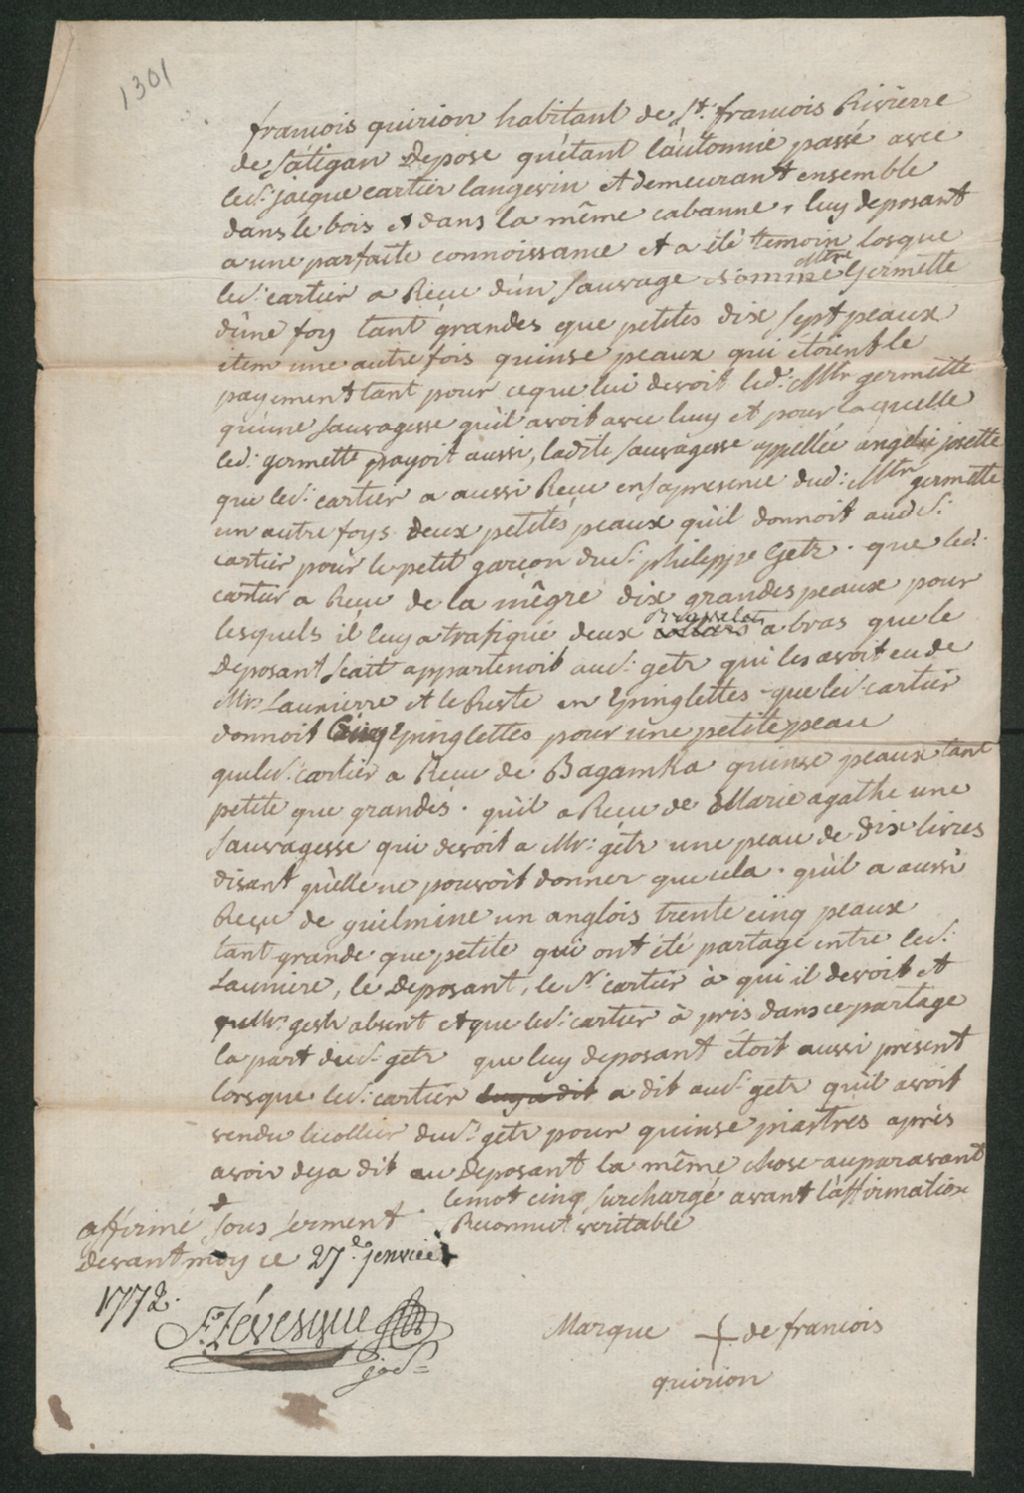 1301
francois quirion habitant de St. francois Rivierre
de Sátigan Depose qu'étant l'autonne passé avec
led. jacque cartier langevin et demeurant ensemble
dans le bois et dans la même cabanne, luy deposant
a une parfaite connoissance et a été temoin losque
led. cartier a Recue d'un sauvage nommé Mtre Germette
d'une foy tant grandes que petites dix sept peaux
item une autre fois quinse peaux qui étoient le
payement tant pour ce que lui devoit led. Mtr germette
qu'une sauvagesse qu'il avoit avec luy et pour laquelle
led. germette payoit aussi, ladite sauvagesse appellée angelie josette
que led. cartier a aussi Recue en sa presence dud. Mtr germette
un autre foys deux petites peaux qu'il donnoit aud S.
cartier pour le petit garcon du S. philippe Getz. que led.
cartier a Recue de la négre dix grandes peaux pour
lesquels il luy a trafiqué deux Brasselets a bras que le
Deposant scait appartenoit au d. getz qui les avoit eu de
Mr. Launierre et le Reste en Epinglettes que led. cartier
donnoit Cinq Epinglettes pour une petite peau
que led. cartier a Recue de Bagamka quinse peaux tant
petite que grandes. qu'il a Recue de Marie agathe une
sauvagesse qui devoit a Mr. getz une peau de dix livres
disant qu'elle ne pouvoit donner que cela. qu'il a aussi
Reçue de guilmine un anglois trente cinq peaux
tant grande que petite qui ont été partagé entre led.
Launiere, le Deposant, le Sr. cartier à qui il devoit et
Mr. getz absent et que led. cartier à pris dans ce partage
la part dud. getz que luy deposant étoit aussi present
lorsque led. cartier luy a dit a dit aud. getz qu'il avoit
vendu le collier dud. getz pour quinse piastres après
avoir deja dit au Deposant la même chose auparavant
le mot cinq surchargé avant l'affirmation
affirmé sous serment. Reconnut veritable
devant moy ce 27.e jenvier
1772.
F. Lévesque
Marque + de francois
quirion